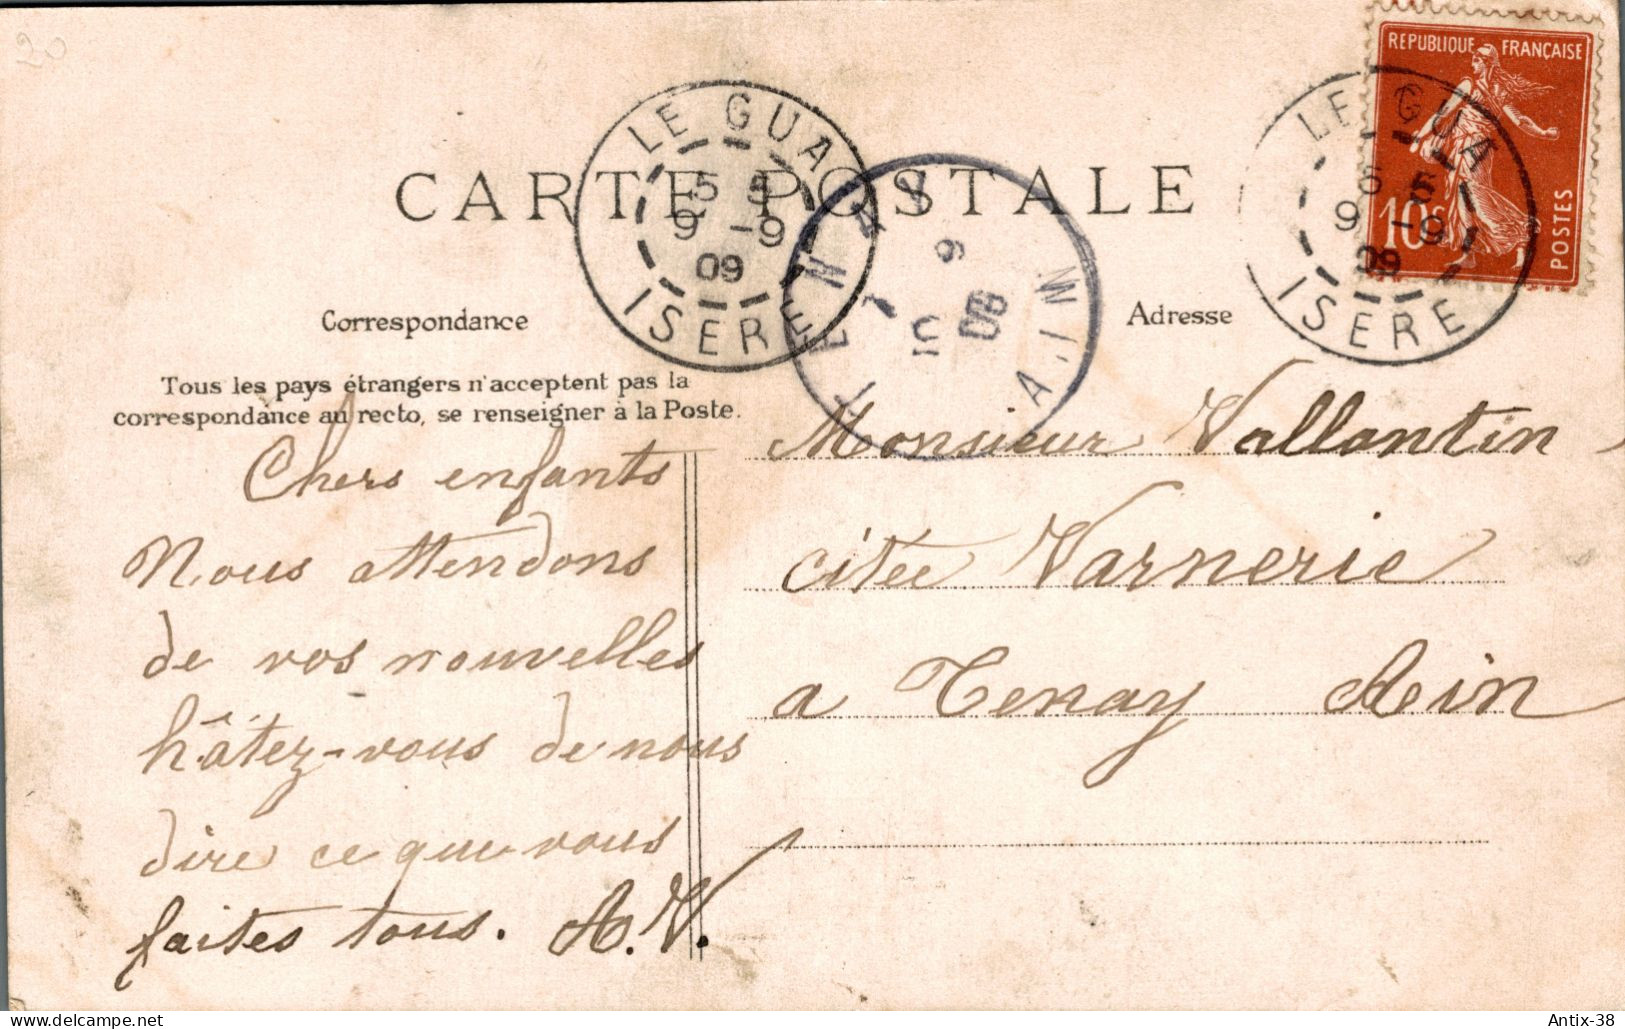 20
REPUBLIQUE FRANÇAISE
10c
POSTES
LE GUA
5 5
9 -9
09
ISERE
LE GUA
5 5
9 -9
09
ISERE
CARTE POSTALE
TENAY
AIN
Correspondance
Adresse
Tous les pays étrangers n'acceptent pas la
correspondance au recto, se renseigner à la Poste.
Chers enfants
Nous attendons
de vos nouvelles
hâtez-vous de nous
dire ce que vous
faites tous. A.V.
Monsieur Vallantin
citée Varnerie
a Tenay Ain
Antix-38